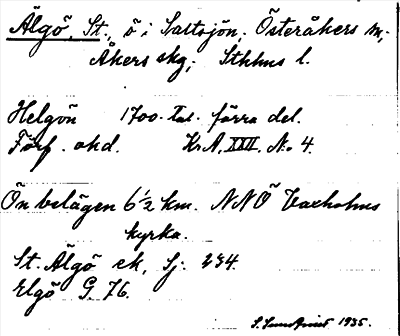 Älgö, St., ö i Saltsjön; Österåkers sn,
Åkers skg; Sthlms l.
Helgön 1700-tal. förra del.
Förf. okd. KrA, XIII, No 4.
Ön belägen 6½ km. NNÖ Vaxholms
kyrka.
St. Älgö ek, Sj. 234.
Elgö G. 76.
1935.